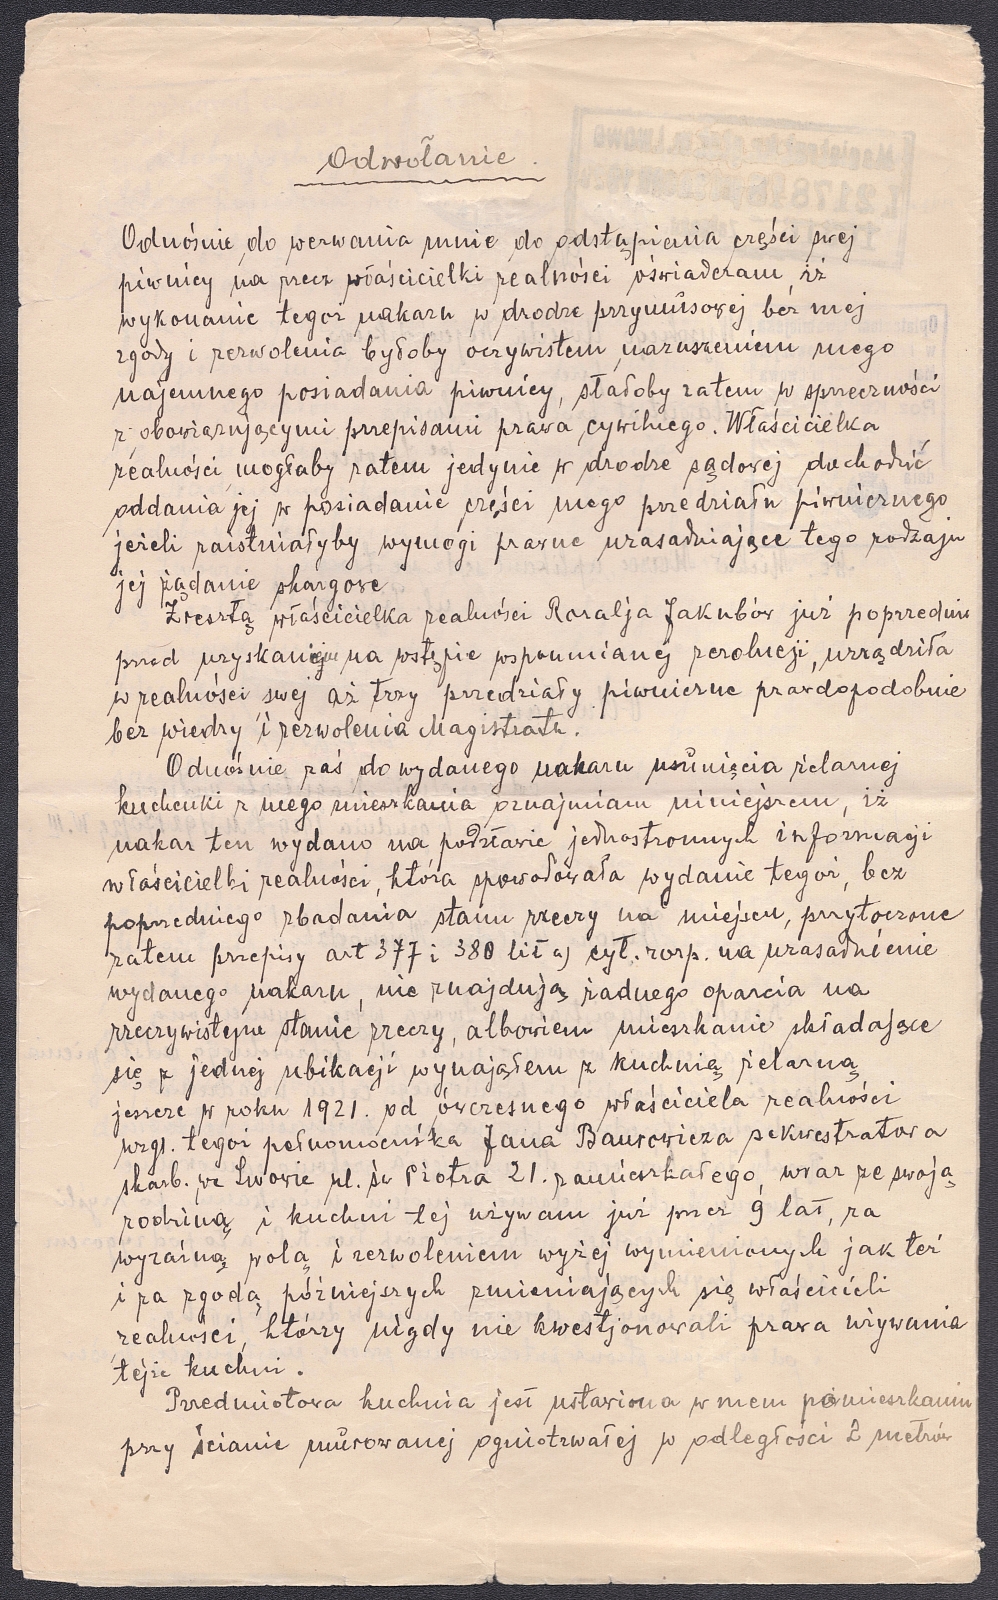 Odwołanie.
Odnośnie do wezwania mnie do odstąpienia części swej
piwnicy na rzecz właścicielki realności oświadczam, iż
wykonanie tegoż nakazu w drodze przymusowej bez mej
zgody i zezwolenia byłoby oczywistem naruszeniem mego
najemnego posiadania piwnicy, stałoby zatem w sprzeczności
z obowiązującymi przepisami prawa cywilnego. Właścicielka
realności mogłaby zatem jedynie w drodze sądowej dochodzić
oddania jej w posiadanie części mego przedziału piwnicznego
jeżeli zaistniałyby wymogi prawne uzasadniające tego rodzaju
jej żądanie skargowe
Zresztą właścicielka realności Rozalja Jakubów już poprzednio
przed uzyskaniem na wstępie wspomnianej rezolucji, urządziła
w realności swej aż trzy przedziały piwniczne prawdopodobnie
bez wiedzy i zezwolenia Magistratu.
Odnośnie zaś do wydanego nakazu usunięcia żelaznej
kuchenki z mego mieszkania oznajmiam niniejszem, iż
nakaz ten wydano na podstawie jednostronnych informacji
właścicielki realności, która spowodowała wydanie tegoż, bez
poprzedniego zbadania stanu rzeczy na miejscu, przytoczone
zatem przepisy art 377 i 380 lit a) cyt. rozp. na uzasadnienie
wydanego nakazu, nie znajdują żadnego oparcia na
rzeczywistejne stanie rzeczy, albowiem mieszkanie składające
się z jednej ubikacji wynająłem z kuchnią żelazną
jeszcze w roku 1921. od ówczesnego właściciela realności
wzgl. tegoż pełnomocnika Jana Baurowicza sekwestratora
skarb. we Lwowie pl. św Piotra 21. zamieszkałego, wraz ze swoją
rodziną i kuchni tej używam już przez 9 lat, za
wyraźną wolą i zezwoleniem wyżej wymienionych jak też
i za zgodą późniejszych zmieniających się właścicieli
realności, którzy nigdy nie kwestjonowali prawa używania
tejże kuchni.
Przedmiotowa kuchnia jest ustawiona w mem pomieszkaniu
przy ścianie murowanej ogniotrwałej w odległości 2 metrów